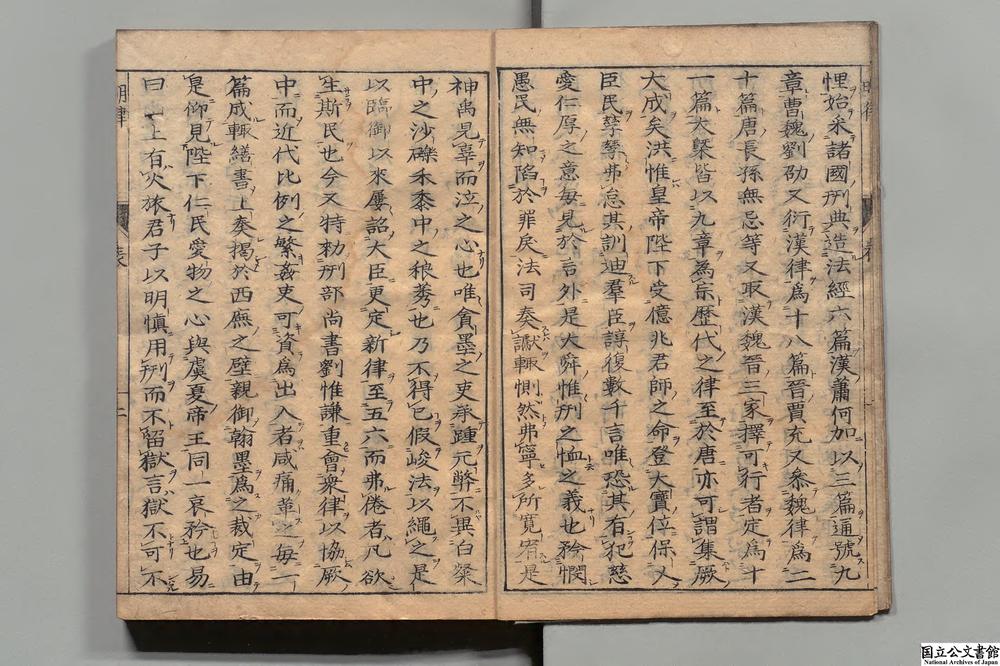 悝始采諸國刑典造法經六篇漢蕭何加以三篇通號九
章曹魏劉劭又衍漢律爲十八篇晉賈充又叅魏律爲二
十篇唐長孫無忌等又取漢魏晉三家擇可行者定爲十
一篇大槩皆以九章爲宗歷代之律至於唐亦可謂集厥
大成矣洪惟皇帝陛下受億兆君師之命登大寶位保乂
臣民孳孳弗怠其訓迪羣臣諄復數千言唯恐其有犯慈
愛仁厚之意每見於言外是大舜惟刑之恤之義也矜憫
愚民無知陷於罪戾法司奏讞輒惻然弗寧多所寬宥是
神禹見辜而泣之心也唯貪墨之吏承踵元弊不異白粲
中之沙礫禾黍中之稂莠也乃不得已假峻法以繩之是
以臨御以來屢詔大臣更定新律至五六而弗倦者凡欲
生斯民也今又特勑刑部尚書劉惟謙重會衆律以協厥
中而近代比例之繁姦吏可資爲出入者咸痛革之每一
篇成輙繕書上奏揭於西廡之壁親御翰墨爲之裁定由
是仰見陛下仁民愛物之心與虞夏帝王同一哀矜也易
曰山上有火旅君子以明慎用刑而不留獄言獄不可不
明律
表
二
国立公文書館
National Archives of Japan